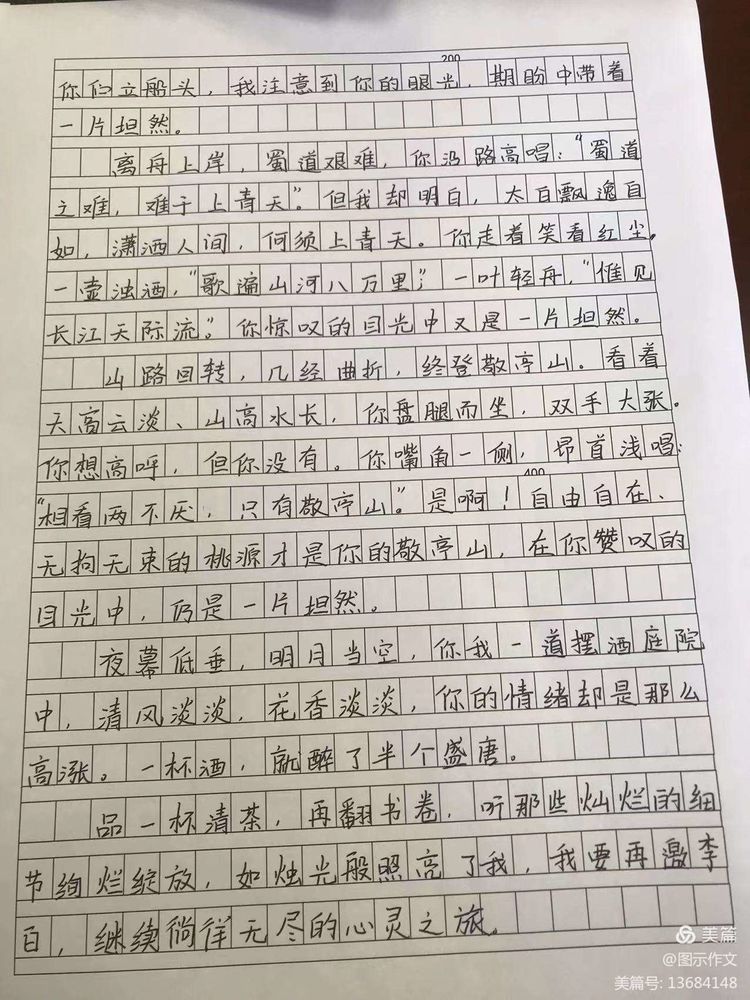 200
你伫立船头，我注意到你的眼光，期盼中带着
一片坦然。
离舟上岸，蜀道艰难，你沿路高唱：“蜀道
之难，难于上青天”。但我却明白，太白飘逸自
如，潇洒人间，何须上青天。你走着笑看红尘。
一壶浊酒，“歌遍山河八万里”；一叶轻舟，“惟见
长江天际流”。你惊叹的目光中又是一片坦然。
山路回转，几经曲折，终登敬亭山。看着
天高云淡、山高水长，你盘腿而坐，双手大张。
你想高呼，但你没有。你嘴角一侧，昂首浅唱：
400
“相看两不厌，只有敬亭山”。是啊！自由自在、
无拘无束的桃源才是你的敬亭山，在你赞叹的
目光中，仍是一片坦然。
夜幕低垂，明月当空，你我一道摆酒庭院
中，清风淡淡，花香淡淡，你的情绪却是那么
高涨。一杯酒，就醉了半个盛唐。
品一杯清茶，再翻书卷，听那些灿烂的细
节绚烂绽放，如烛光般照亮了我，我要再邀李
白，继续徜徉无尽的心灵之旅。
美篇
@图示作文
美篇号: 13684148